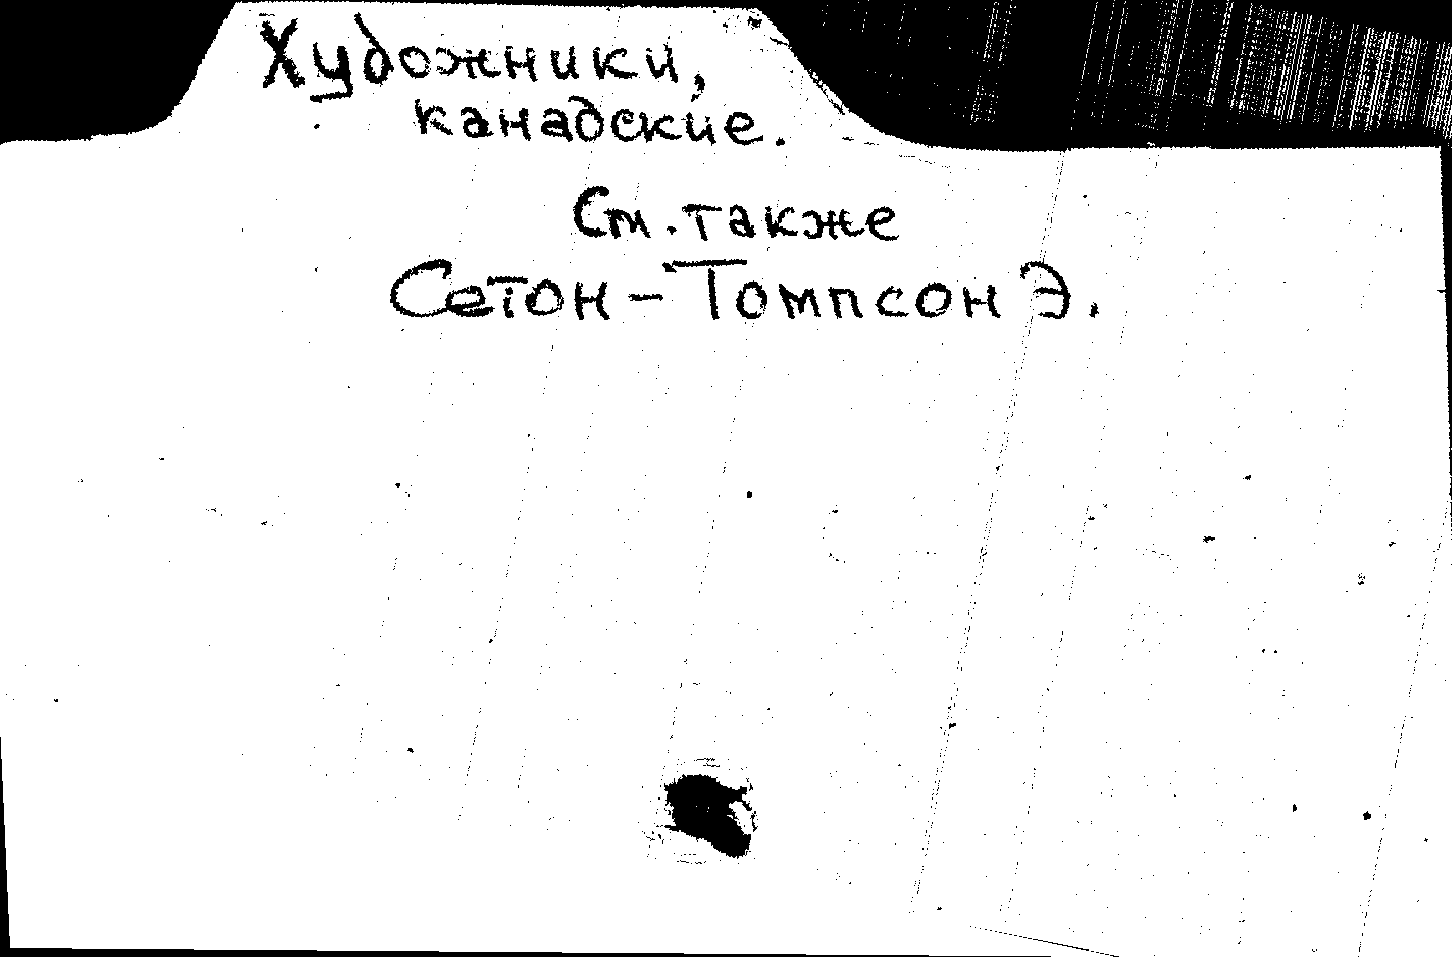 Художники,
канадские.
См. также
Сетон-Томпсон Э.